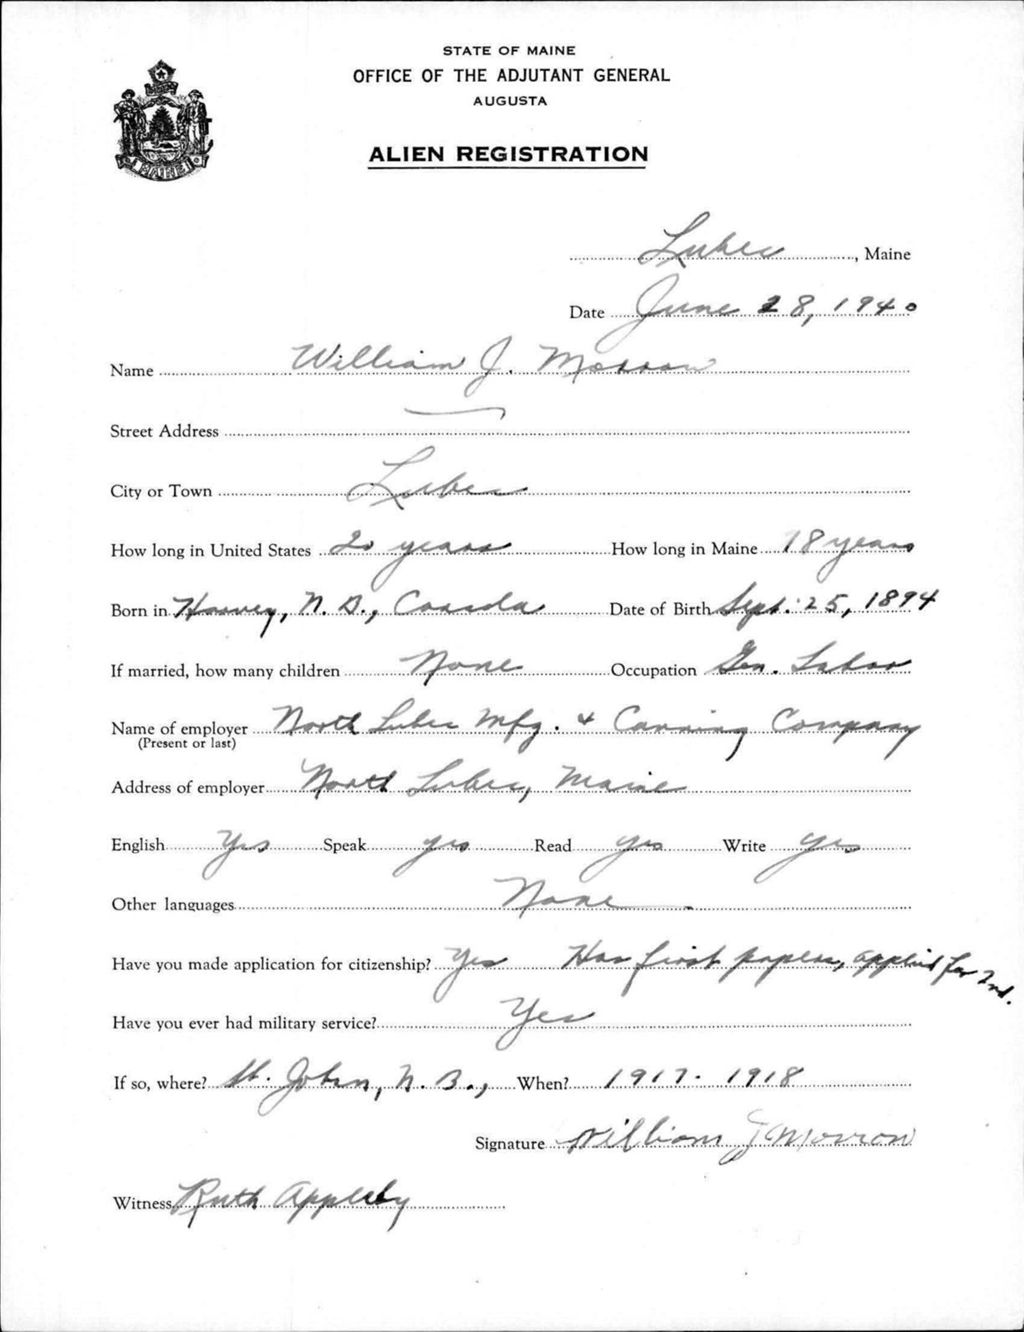 STATE OF MAINE
OFFICE OF THE ADJUTANT GENERAL
AUGUSTA
ALIEN REGISTRATION
MAINE
Lubec, Maine
Date June 28, 1940
Name William J. Morrow
Street Address —
City or Town Lubec
How long in United States 20 years How long in Maine 18 years
Born in Harvey, N. B., Canada Date of Birth Sept. 25, 1894
If married, how many children None Occupation Gen. Labor
Name of employer North Lubec Mfg. & Canning Company
(Present or last)
Address of employer North Lubec, Maine
English Yes Speak yes Read yes Write Yes
Other languages None.
Have you made application for citizenship? Yes Has first papers, applied for 2nd.
Have you ever had military service? Yes
If so, where? St. John, N. B., When? 1917-1918
Signature William J Morrow
Witness Ruth Appleby